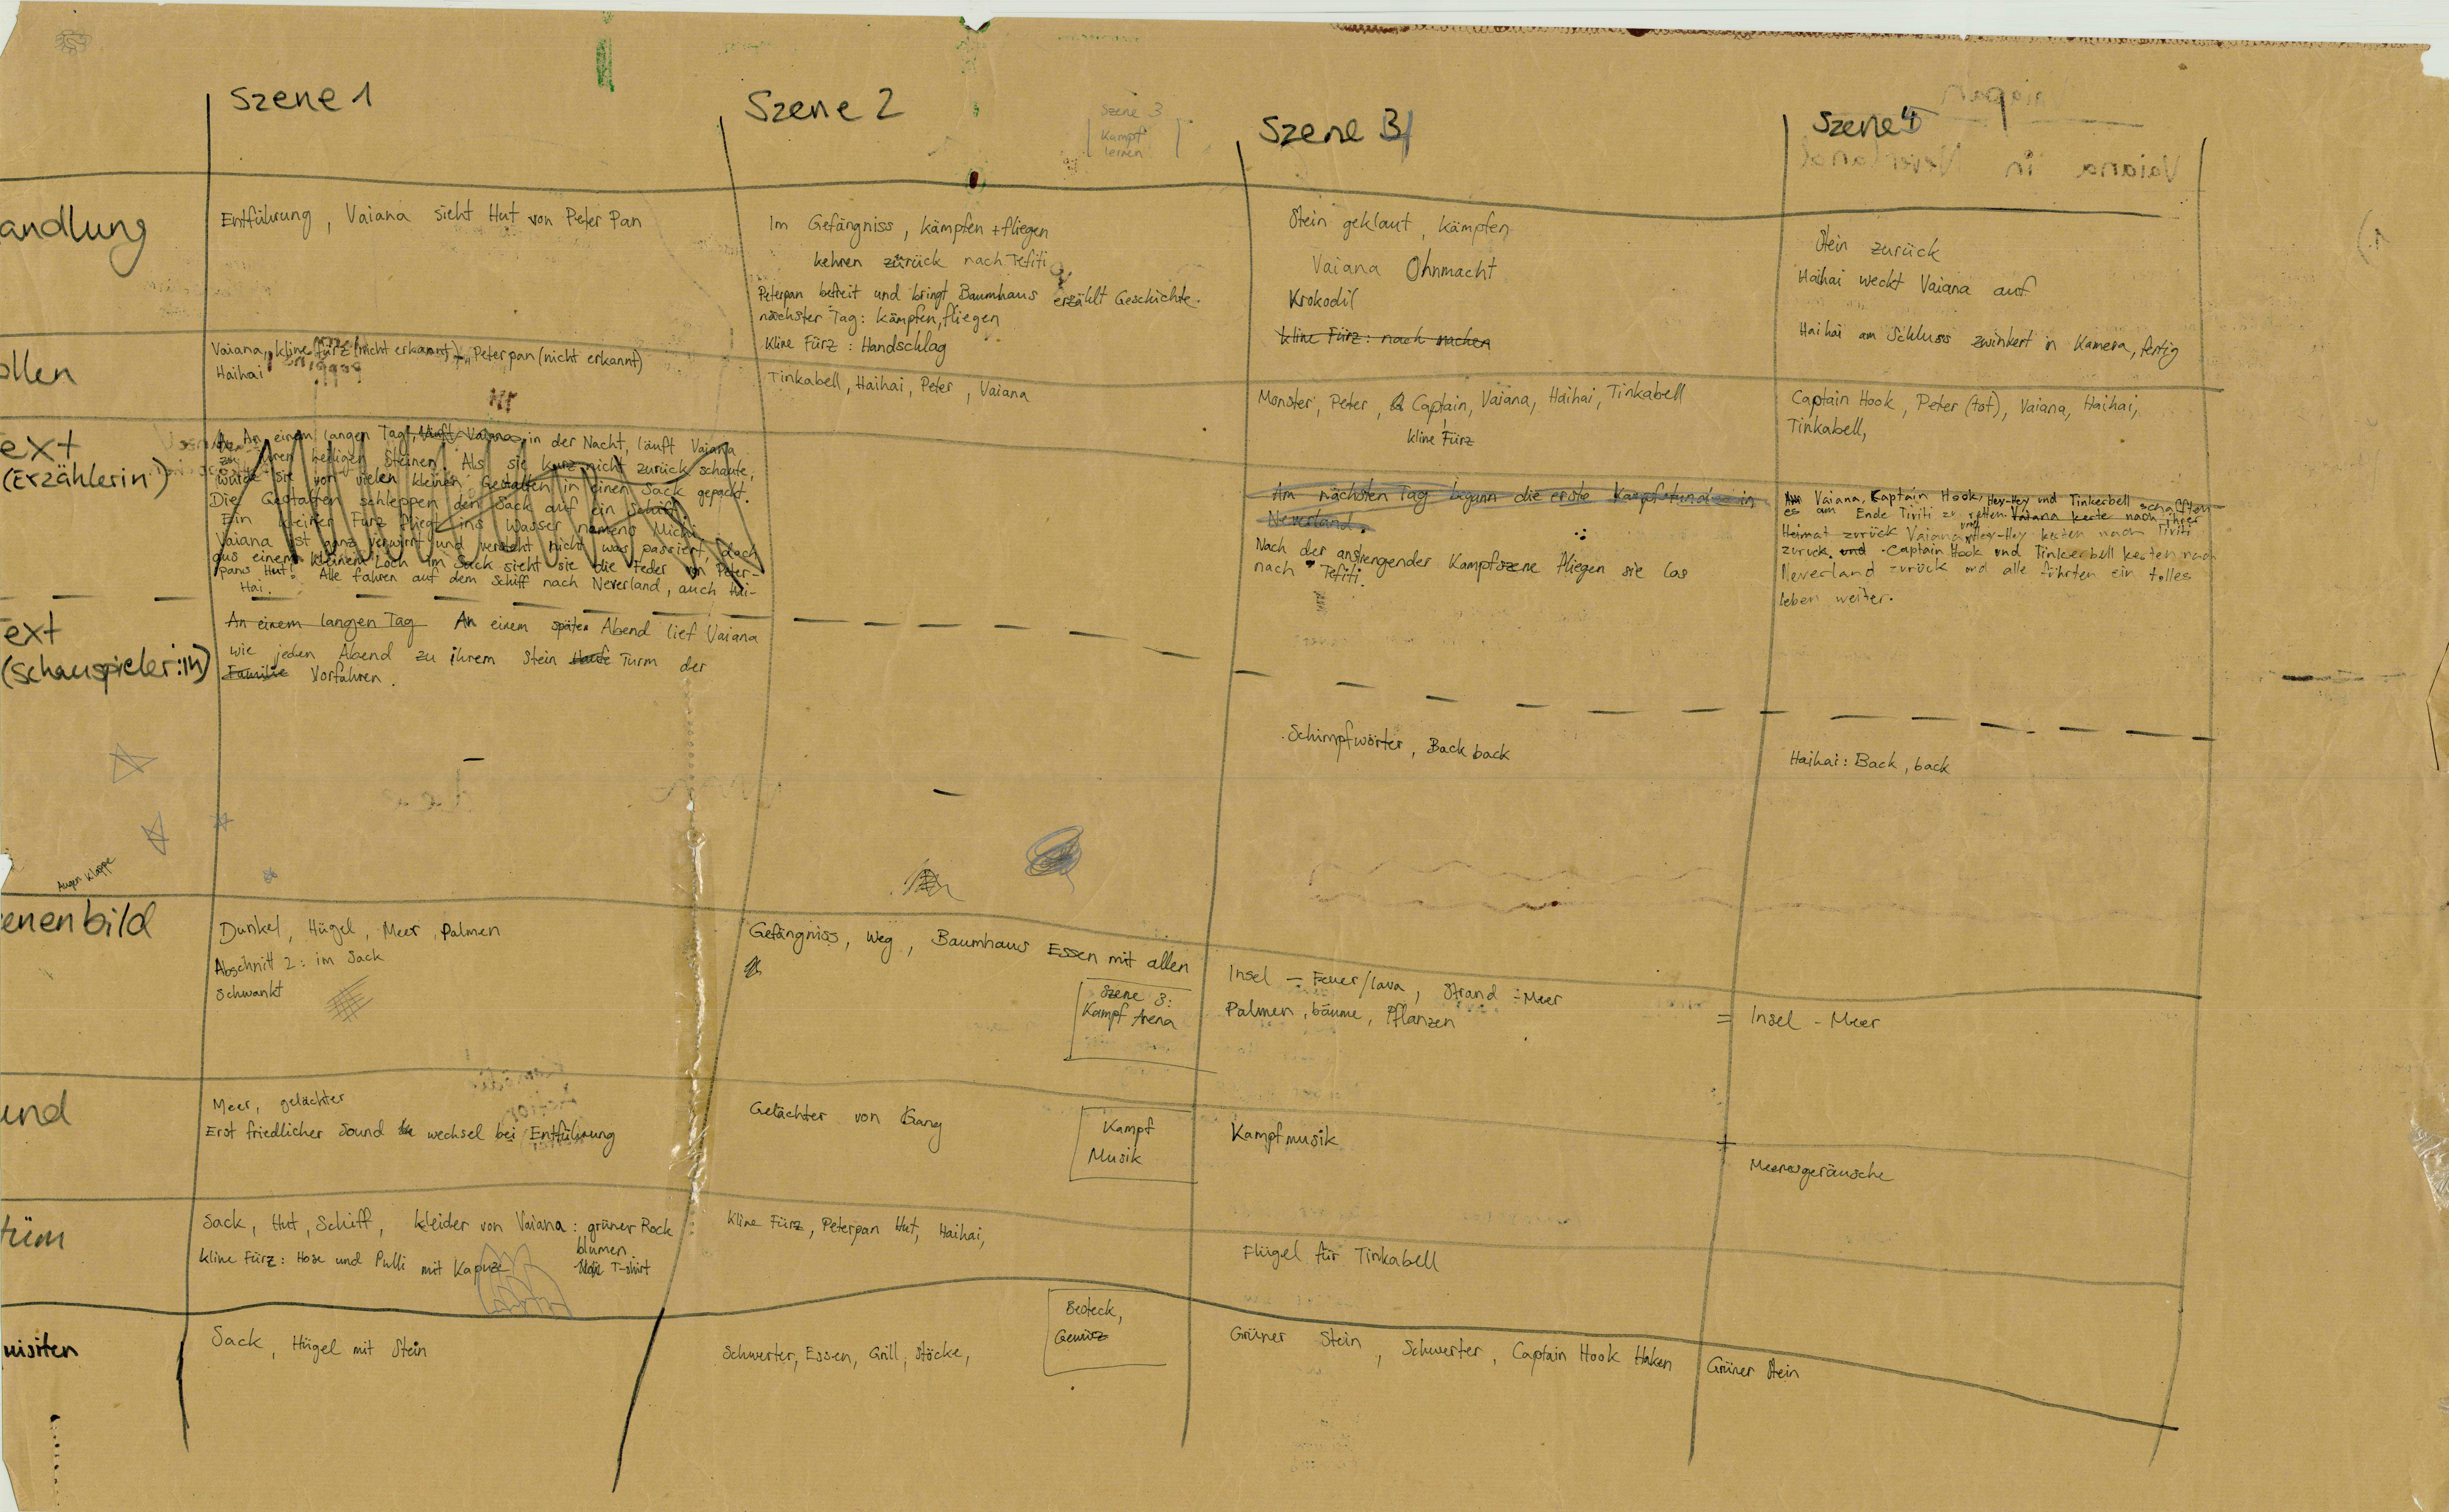 Szene 1
Szene 2
Szene 3
Kampf
lernen
Szene 4
Szene 5
Vaiapan
Vaiana in Neverland
1.)
andlung
Entführung, Vaiana sieht Hut von Peter Pan
Im Gefängniss, kämpfen + fliegen
kehren zürück nach Tefiti
Peterpan befreit und bringt Baumhaus erzählt Geschichte.
nächster Tag: kämpfen, fliegen
Kline Fürz: Handschlag
Stein geklaut, kämpfen
Vaiana Ohnmacht
Krokodil
kline Fürz: nach machen
Stein zurück
Haihai weckt Vaiana auf
Haihai am Schluss zwinkert in Kamera, fertig
ollen
Vaiana, kline fürz (nicht erkannt), Peterpan (nicht erkannt)
Haihai
Tinkabell, Haihai, Peter, Vaiana
Monster, Peter, Captain, Vaiana, Haihai, Tinkabell
kline Fürz
Captain Hook, Peter (tot), Vaiana, Haihai,
Tinkabell,
ext
(Erzählerin)
An einem langen Tag, läuft Vaiana, in der Nacht, läuft Vaiana
zu ihren heiligen Steinen. Als sie kurz nicht zurück schaute,
wurde sie von vielen kleinen Gestalten in einen Sack gepackt.
Die Gestalten schleppen den Sack auf ein Schiff.
Ein kleiner Furz fliegt ins Wasser namens Michi.
Vaiana ist ganz verwirrt und versteht nicht was passiert, doch
aus einem kleinem Loch im Sack sieht sie die Feder von Peter-
pans Hut. Alle fahren auf dem Schiff nach Neverland, auch Hai-
Hai.
Am nächsten Tag begann die erste Kampfstunde in
Neverland.
Nach der anstrengender Kampfszene fliegen sie los
nach Tefiti.
Vaiana, Captain Hook, Hey-Hey und Tinkerbell schafften
es am Ende Tiviti zu retten. Vaiana kerte nach ihrer
Heimat zurück Vaiana und Hey-Hey kerten nach Tiviti
zurück. und Captain Hook und Tinkerbell kerten nach
Neverland zurück und alle führten ein tolles
leben weiter.
ext
(Schauspieler:in)
An einem langen Tag An einem späten Abend lief Vaiana
wie jeden Abend zu ihrem Stein Haufe Turm der
Familie Vorfahren.
Schimpfwörter, Back back
Haihai: Back, back
Augen Klappe
enenbild
Dunkel, Hügel, Meer, Palmen
Abschnitt 2: im Sack
Schwankt
Gefängniss, Weg, Baumhaus Essen mit allen
Szene 3:
Kampf Arena
Insel - Feuer/Lava, Strand - Meer
Palmen, bäume, Pflanzen
= Insel - Meer
und
Meer, gelächter
Erst friedlicher Sound wechsel bei Entführung
Gelächter von Gang
Kampf
Musik
Kampfmusik
Meeresgeräusche
tüm
Sack, Hut, Schiff, kleider von Vaiana: grüner Rock
blumen
T-shirt
kline Fürz: Hose und Pulli mit Kapuze
kline Fürz, Peterpan Hut, Haihai,
Flügel für Tinkabell
uisiten
Sack, Hügel mit Stein
Schwerter, Essen, Grill, Stöcke,
Besteck,
Gewürz
Grüner Stein, Schwerter, Captain Hook Haken
Grüner Stein